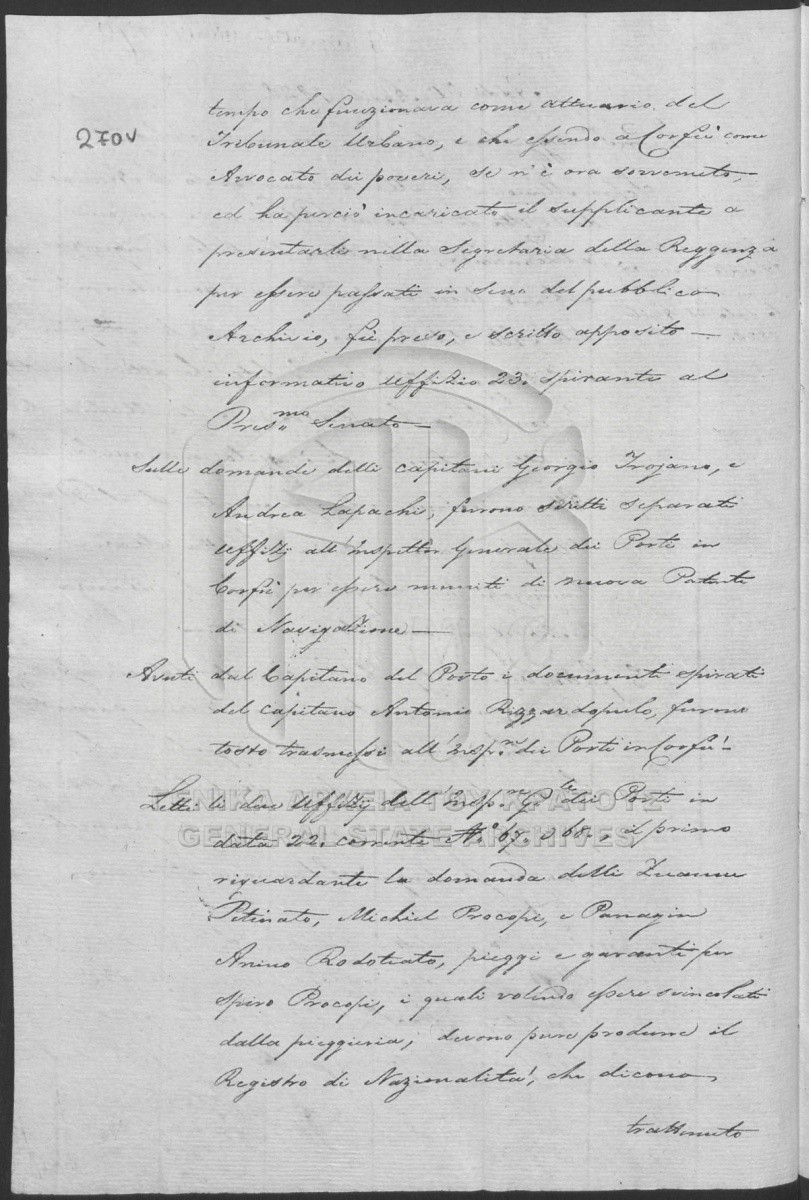 270v
tempo che funzionava come attuario del
Tribunale Urbano, e che essendo a Corfù come
Avvocato dei poveri, se n'è ora sovvenuto,
ed ha perciò incaricato il supplicante a
presentarli nella Segretaria della Reggenza
per essere passati in seno del pubblico
Archivio, fù preso, e scritto apposito
informativo Uffizio 23. spirante al
Pres.mo Senato
Sulle domande delli capitani Georgio Trojano, e
Andrea Lapachi, furono scritti separati
Uffizij all'Inspettor Generale dei Porti in
Corfù per essere muniti di nuova Patente
di Navigazione
Avuti dal Capitano del Porto i documenti spirati
del capitano Antonio Rizzardopulo, furono
tosto trasmessi all'Insp.r dei Porti in Corfù
ΓΕΝΙΚΑ ΑΡΧΕΙΑ ΤΟΥ ΚΡΑΤΟΥΣ
GENERAL STATE ARCHIVES
Letti li due Uffizij dell'Insp.r G.le dei Porti in
data 22. corrente N.o 67. e 68., il primo
riguardante la domanda delli Zuanne
Petinato, Michiel Procopi, e Panagin
Anino Rodoteato, pieggi e garanti per
Spiro Procopi, i quali volendo essere svincolati
dalla pieggieria, devono pure produrre il
Registro di Nazionalità, che dicono
trattenuto